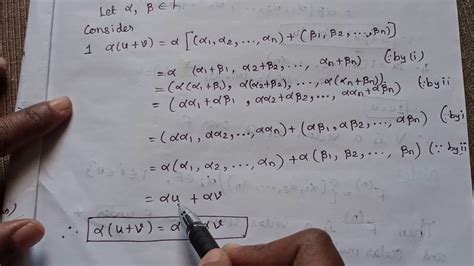 Let α, β ∈ F.
Consider
1 α(u+v) = α [(α1, α2, ..., αn) + (β1, β2, ..., βn)]
= α (α1+β1, α2+β2, ..., αn+βn) (∵ by (i)
= (α(α1+β1), α(α2+β2), ..., α(αn+βn)) (∵ by ii
= (αα1+αβ1, αα2+αβ2, ..., ααn+αβn)
= (αα1, αα2, ..., ααn) + (αβ1, αβ2, ..., αβn) (∵ by i
= α(α1, α2, ..., αn) + α(β1, β2, ..., βn) (∵ by ii
= αu + αv
∴ α(u+v) = αu v